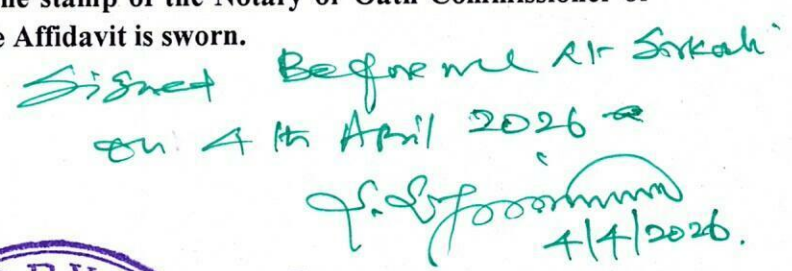 the stamp of the Notary or Oath Commissioner or
e Affidavit is sworn.
Signed Before me At Sirkali
on 4 th April 2026
4/4/2026.